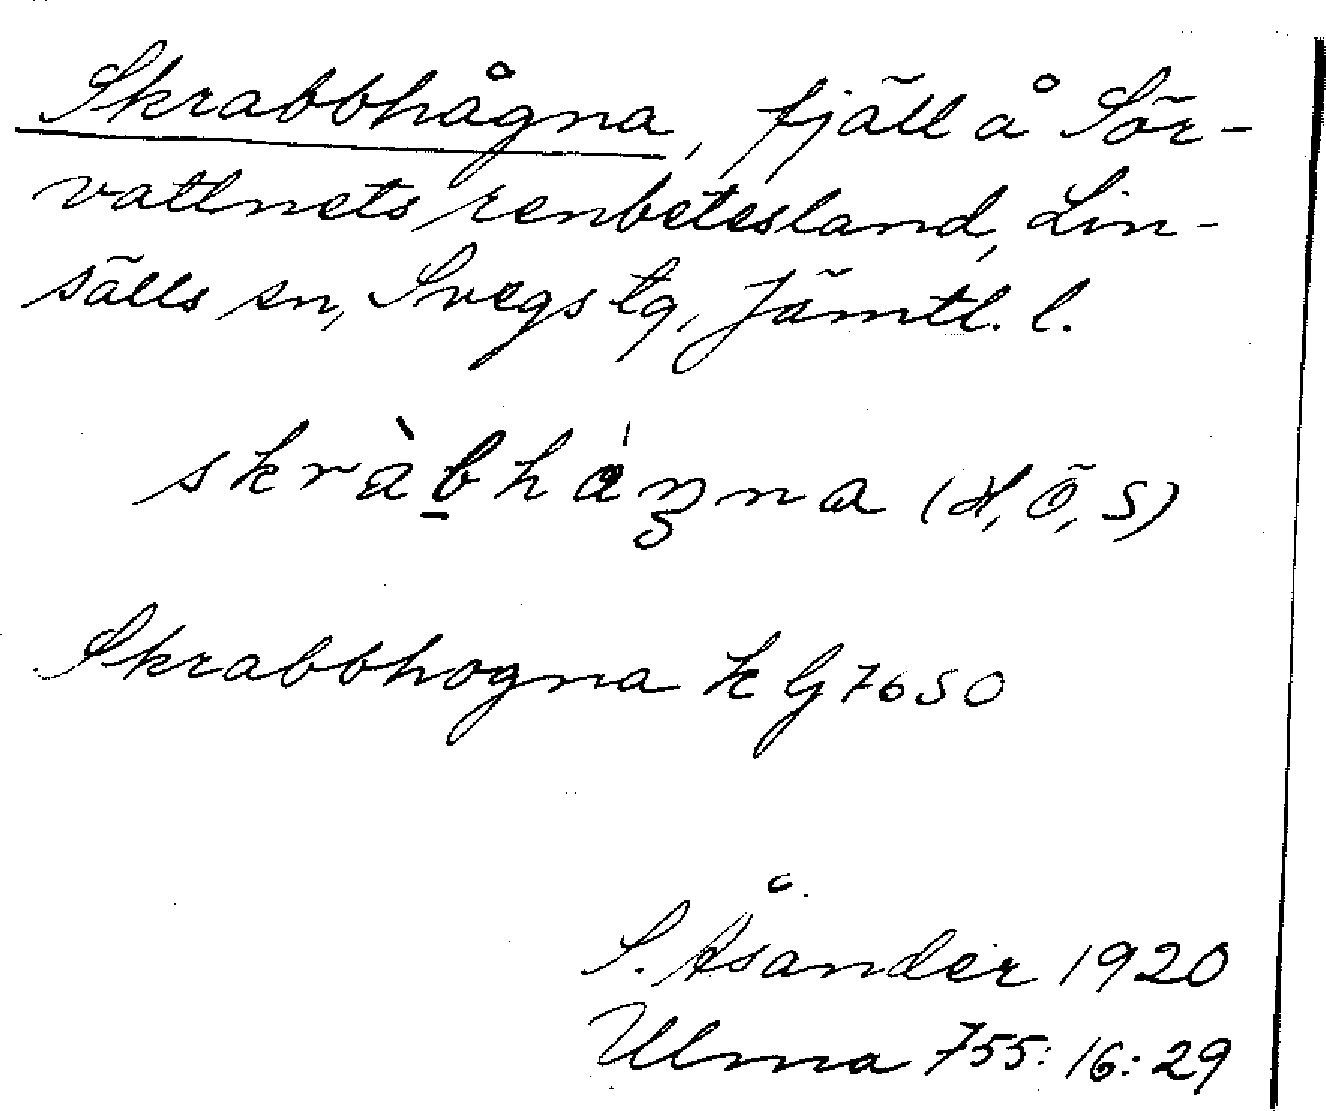 Skrabbhågna, fjäll å Sör-
vattnets renbetesland, Lin-
sälls sn, Svegs tg, Jämtl. l.
skràb̲háŋna (H, Ö, S)
Skrabbhogna k G 7650
S. Åsander 1920
Ulma 755: 16: 29